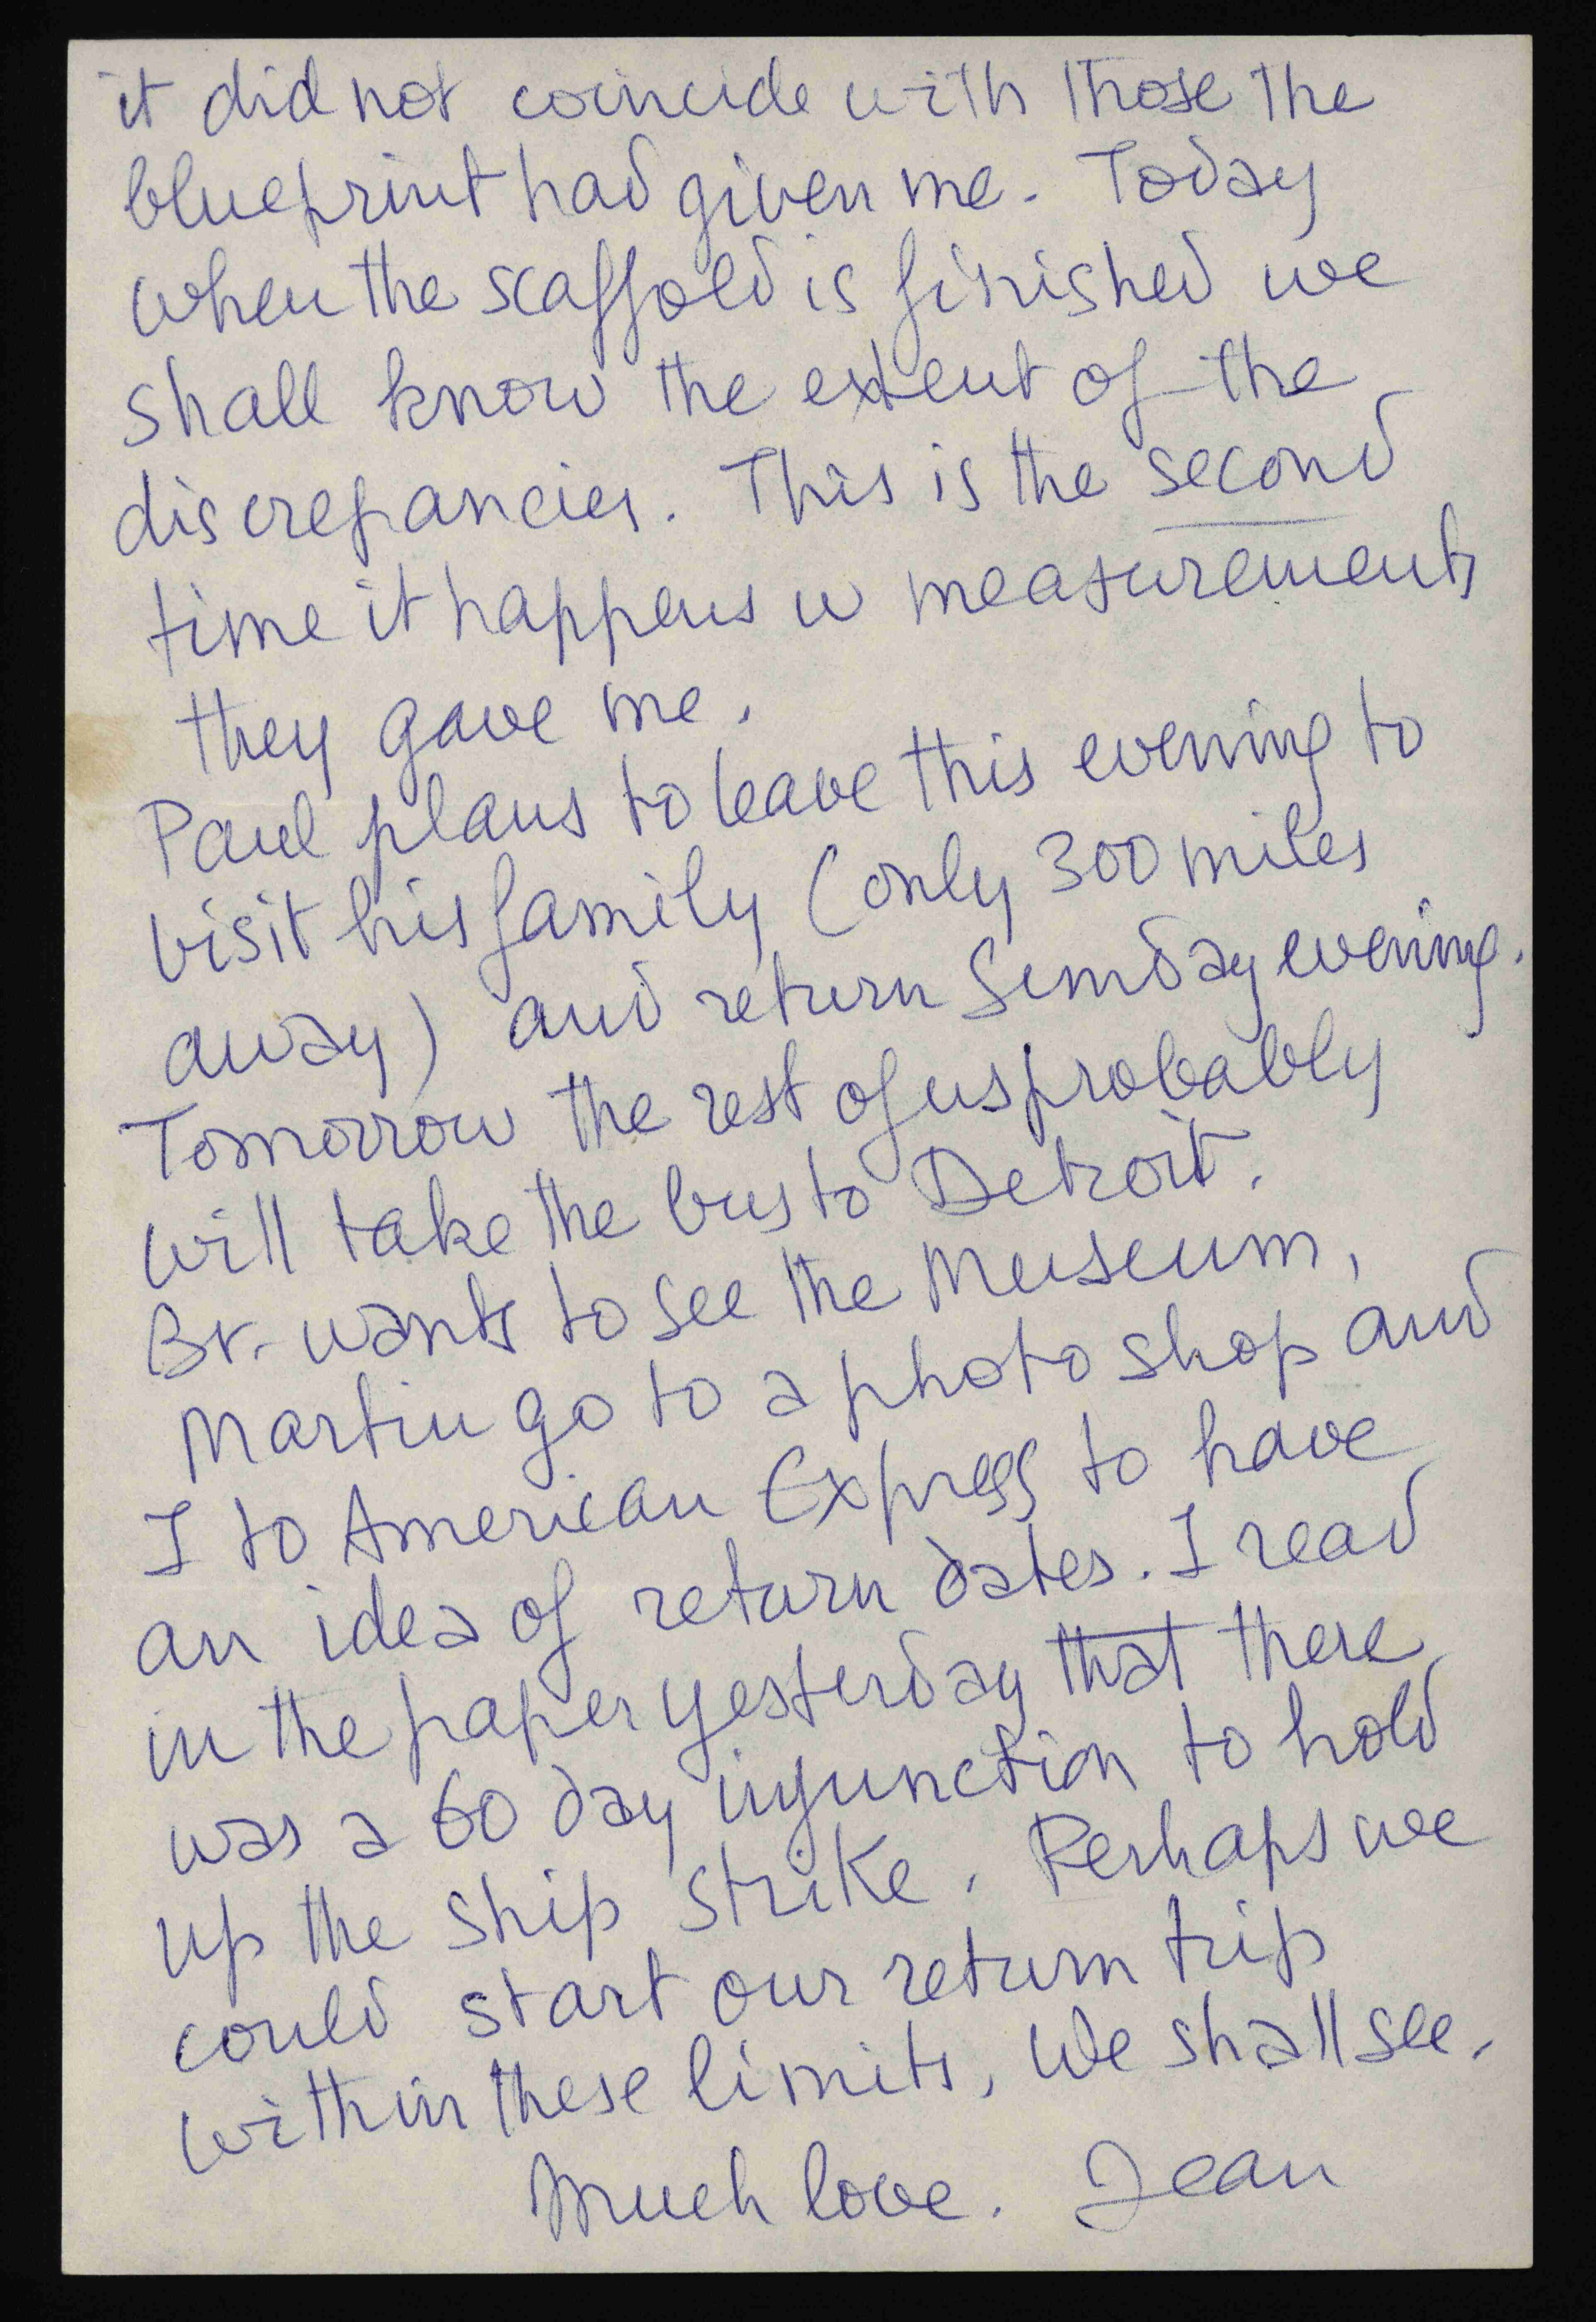 it did not coincide with those the
blueprint had given me. Today
when the scaffold is finished we
shall know the extent of the
discrepancies. This is the second
time it happens w measurements
they gave me.
Paul plans to leave this evening to
visit his family (only 300 miles
away) and return Sunday evening.
Tomorrow the rest of us probably
will take the bus to Detroit.
Br. wants to see the Museum,
Martin go to a photo shop and
I to American Express to have
an idea of return dates. I read
in the paper yesterday that there
was a 60 day injunction to hold
up the ship strike. Perhaps we
could start our return trip
within these limits. We shall see.
Much love. Jean